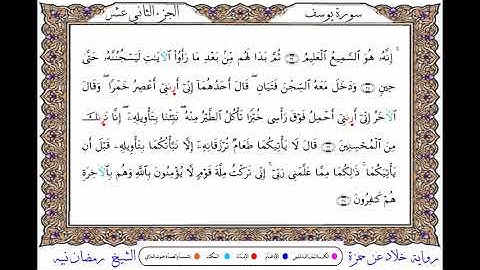 سورة يوسف
الجزء الثاني عشر
إِنَّهُ هُوَ السَّمِيعُ الْعَلِيمُ ۝ ثُمَّ بَدَا لَهُم مِّنۢ بَعْدِ مَا رَأَوُا۟ الْأَيَٰتِ لَيَسْجُنُنَّهُۥ حَتَّىٰ
حِينٍ ۝ وَدَخَلَ مَعَهُ السِّجْنَ فَتَيَانِ ۖ قَالَ أَحَدُهُمَا إِنِّى أَرَىٰنِى أَعْصِرُ خَمْرًا ۖ وَقَالَ
الْأَخَرُ إِنِّى أَرَىٰنِى أَحْمِلُ فَوْقَ رَأْسِى خُبْزًا تَأْكُلُ الطَّيْرُ مِنْهُ ۖ نَبِّئْنَا بِتَأْوِيلِهِۦ ۖ إِنَّا نَرَىٰكَ
مِنَ الْمُحْسِنِينَ ۝ قَالَ لَا يَأْتِيكُمَا طَعَامٌ تُرْزَقَانِهِۦ إِلَّا نَبَّأْتُكُمَا بِتَأْوِيلِهِۦ قَبْلَ أَن
يَأْتِيَكُمَا ۚ ذَٰلِكُمَا مِمَّا عَلَّمَنِى رَبِّى ۚ إِنِّى تَرَكْتُ مِلَّةَ قَوْمٍ لَّا يُؤْمِنُونَ بِاللَّهِ وَهُم بِالْأَخِرَةِ
هُمْ كَٰفِرُونَ ۝
رواية خلاد عن حمزة
الشيخ رمضان نبيه